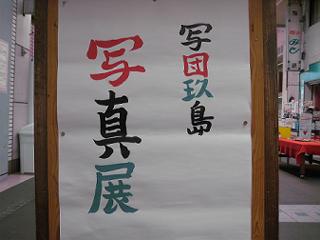 写団玖島
写真展